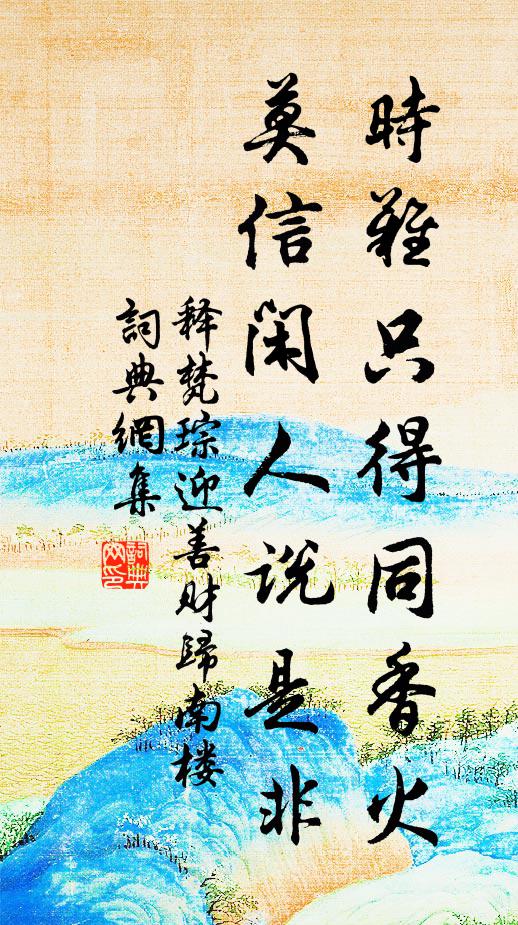 時難只得同香火
莫信閑人说是非
释梵琮迎善财歸南楼
詞典網集
詞典
网印